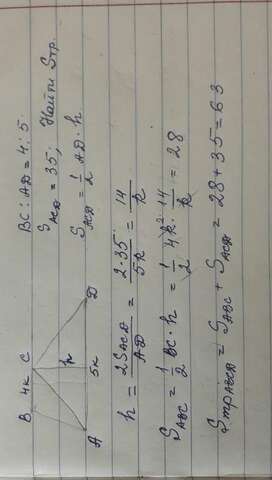 B 4к C
h
A 5к D
BC : AD = 4 : 5.
S_ACD = 35; Найти Sтр.
S_ACD = 1/2 AD · h
h = 2S_ACD / AD = 2·35 / 5к = 14 / к
S_ABC = 1/2 BC · h = 1/2 4к · 14/к = 28
Sтр ABCD = S_ABC + S_ACD = 28 + 35 = 63